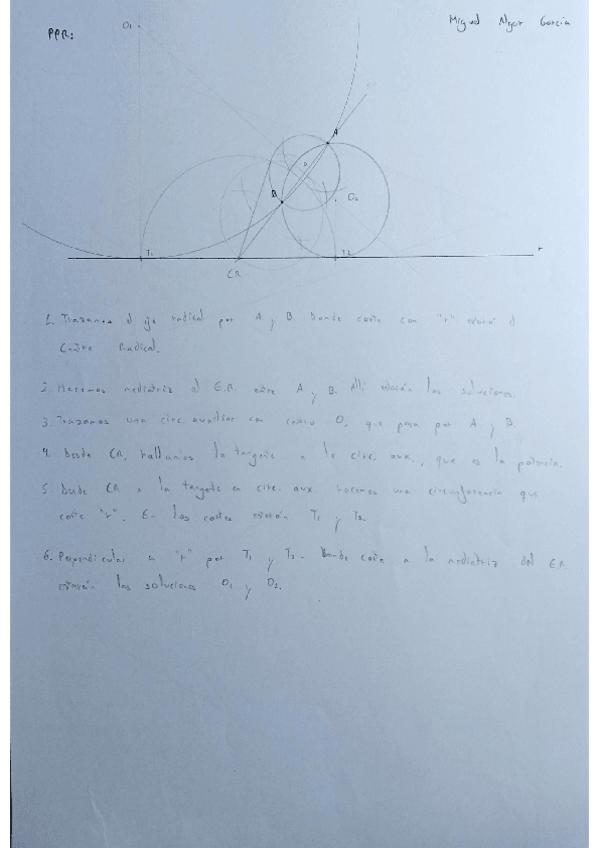 PPR:
O1
Miguel García
A
B
O
O2
T1
T2
r
CR
1. Trazamos el eje radical por A y B. Donde corte con "r" estará el
Centro Radical.
2. Hacemos mediatriz al E.R. entre A y B. Allí estarán las soluciones.
3. Trazamos una circ. auxiliar con centro O, que pasa por A y B.
4. Desde CR, hallamos la tangente a la circ. aux., que es la potencia.
5. Desde CR a la tangente en circ. aux. hacemos una circunferencia que
corte "r". En los cortes estarán T1 y T2.
6. Perpendicular a "r" por T1 y T2. Donde corte a la mediatriz del E.R.
estarán las soluciones O1 y O2.